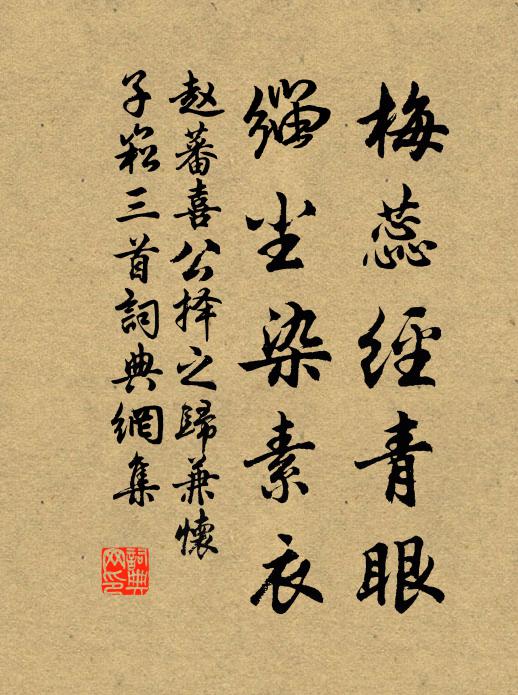 梅蕊經青眼
緇尘染素衣
赵蕃喜公择之歸兼懷
子崧三首詞典網集
詞典网印